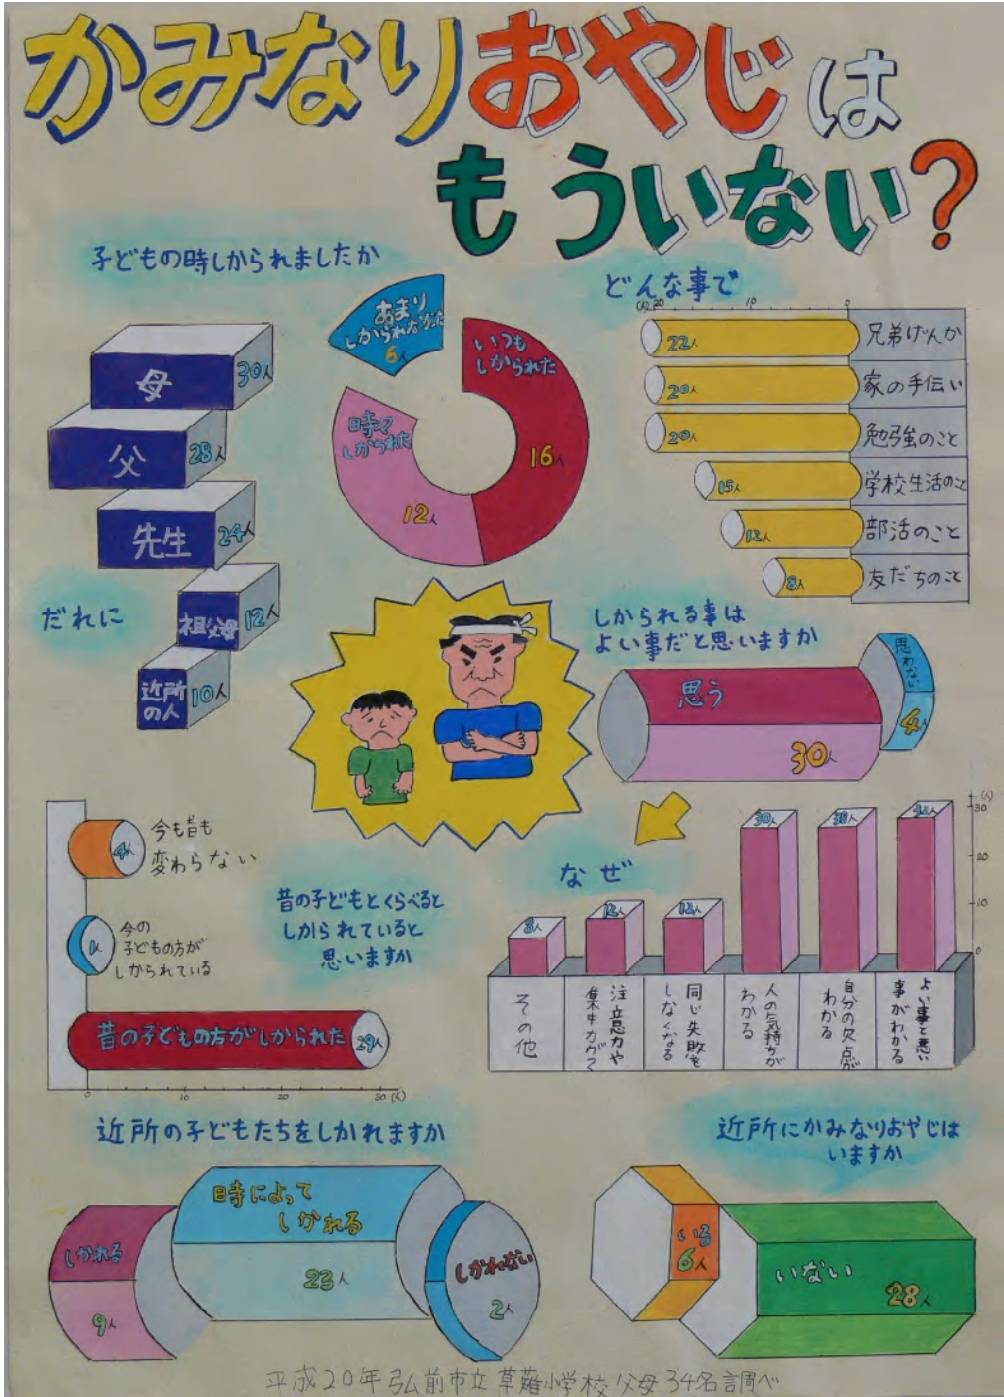 かみなりおやじは
もういない?
子どもの時しかられましたか
あまり
しかられなかった
6人
いつも
しかられた
16人
時々
しかられた
12人
だれに
母
30人
父
28人
先生
24人
祖父母
12人
近所
の人
10人
どんな事で
(人) 20 10 0
22人 兄弟げんか
20人 家の手伝い
20人 勉強のこと
15人 学校生活のこと
12人 部活のこと
8人 友だちのこと
しかられる事は
よい事だと思いますか
思う
30人
思わない
4人
なぜ
(人)
30
20
10
0
8人
12人
12人
30人
30人
その他
注意力や
集中力がつく
同じ失敗を
しなくなる
人の気持ちが
わかる
自分の欠点が
わかる
よい事と悪い
事がわかる
昔の子どもとくらべると
しかられていると
思いますか
4人
今も昔も
変わらない
1人
今の
子どもの方が
しかられている
昔の子どもの方がしかられた 29人
0 10 20 30 (人)
近所の子どもたちをしかれますか
しかれる
9人
時によって
しかれる
23人
しかれない
2人
近所にかみなりおやじは
いますか
いる
6人
いない
28人
平成20年弘前市立草薙小学校父母34名調べ